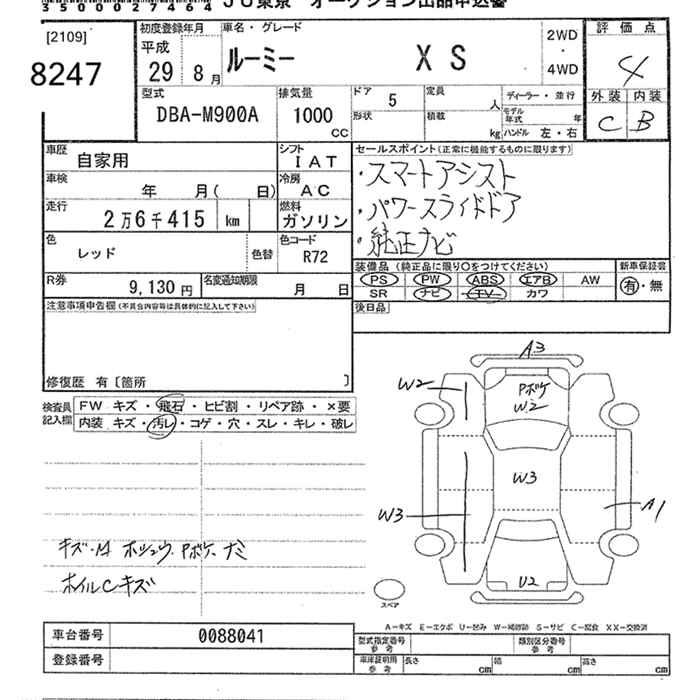 35000027464 JU東京 オークション出品申込書
[2109]
8247
初度登録年月 車名・グレード
平成 29年 8月 ルーミー X S 2WD・4WD
評価点
4
外装 内装
C B
型式 排気量 ドア 5 定員 人 ディーラー・並行
DBA-M900A 1000 cc 形状 積載 kg モデル年式 年
ハンドル 左・右
車歴 自家用 シフト IAT
車検 年 月( 日) 冷房 AC
走行 2万6千415 km 燃料 ガソリン
色 レッド 色替 色コード R72
R券 9,130円 名変通知期限 月 日
セールスポイント(正常に機能するものに限ります)
・スマートアシスト
・パワースライドドア
・純正ナビ
装備品(純正品に限り○をつけてください) 新車保証書
PS PW ABS エアB AW 有・無
SR ナビ TV カワ
後日品
注意事項申告欄(不具合内容等は具体的に記入して下さい)
修復歴 有〔箇所 〕
検査員記入欄
FW キズ・飛石・ヒビ割・リペア跡・×要
内装 キズ・汚レ・コゲ・穴・スレ・キレ・破レ
A3
W2 Pボケ
W2
W3
W3 A1
U2
スペア
キズ・凹 ホシュウ.Pボケ.ナミ
ホイルCキズ
A-キズ E-エクボ U-凹み W-補修跡 S-サビ C-腐食 XX-交換済
車台番号 0088041
登録番号
型式指定番号 参考 類別区分番号 参考
車庫証明用 参考 長さ cm 幅 cm 高さ cm